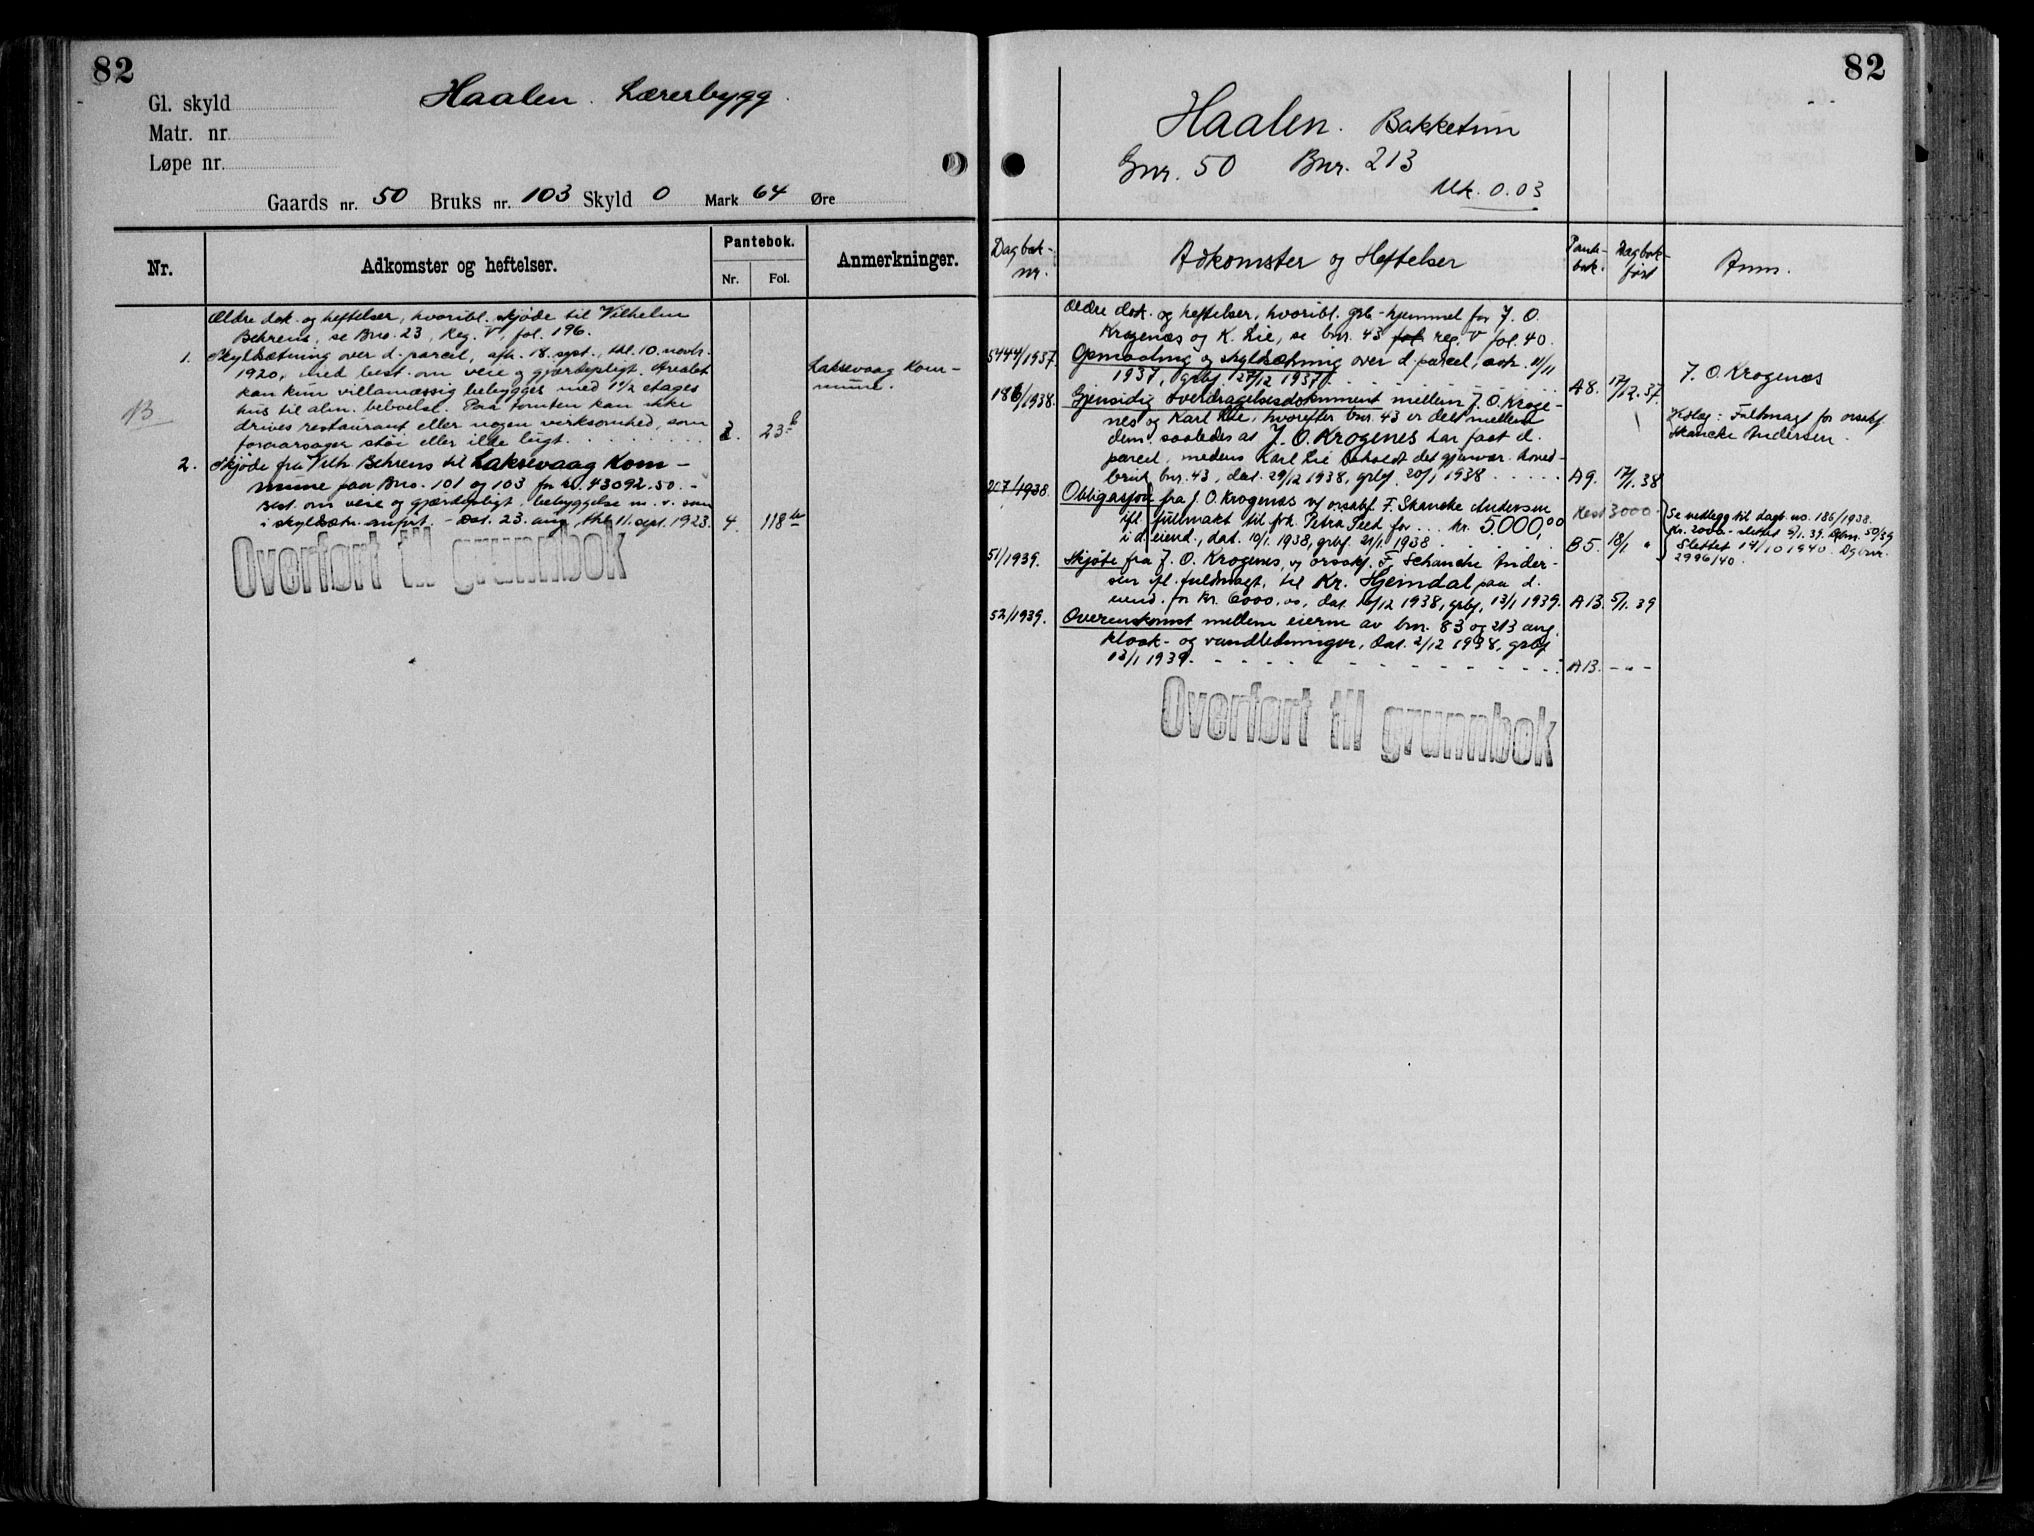 82
Haalen. Lærerbygg.
Gl. skyld
Matr. nr.
Løpe nr.
Gaards nr. 50 Bruks nr. 103 Skyld 0 Mark 64 Øre
Nr.
Adkomster og heftelser.
Pantebok.
Nr.
Fol.
Anmerkninger.
Ældre dok. og heftelser, hvoribl. skjøde til Vilhelm
Behrens, se Bno. 23, Reg. V, fol. 196.
1. Skyldsætning over d. parcel, afh. 18. sept., thl. 10. novbr.
1920, med best. om veie og gjærdepligt. Arealet
kan kun villamæssig bebygges med 1 1/2 etages
hus til alm. beboelse. Paa tomten kan ikke
drives restaurant eller nogen virksomhed, som
foraarsager støi eller ilde lugt. 2. 23 b
Laksevaag Kom-
mune.
2. Skjøde fra Vilh. Behrens til Laksevaag Kom-
mune paa Bno. 101 og 103 for kr. 43092.50. -
Best. om veie og gjærdepligt, bebyggelse m. v. som
i skyldsætn. anført. - Dat. 23. aug., thl. 11. sept. 1923. 4. 118
Overført til grunnbok
82
Haalen. Bakketun
Gnr. 50 Bnr. 213
Mk. 0.03
Dagbok-
nr.
Adkomster og Heftelser
Pante-
bok.
Dagbok-
ført
Anm.
Ældre dok. og heftelser, hvoribl. grb-hjemmel for J. O.
Krogenæs og K. Lie, se bnr. 43 fol. reg. V fol. 40.
5444/1937. Opmaaling og skyldsætning over d. parcel, avh. 11/11
1937, grbf. 27/12 1937. A8. 17/12.37.
J. O. Krogenæs
186/1938. Gjensidig overdragelsesdokument mellem J. O. Kroge-
nes og Karl Lie, hvorefter bnr. 43 er delt mellem
dem saaledes at J. O. Krogenes har faat d.
parcel, medens Karl Lie beholdt det gjenvær. hoved-
bruk bnr. 43, dat. 29/12 1938, grbf. 20/1 1938. A9. 17/1.38
Vedleg: Fuldmagt for orsakf.
Skancke Andersen.
207/1938. Obligasjon fra J. O. Krogenæs v/ orsakf. F. Skancke Andersen
ifl. fullmakt til frk. Petra Peet for kr. 5000,00
i d. eiend., dat. 10/1. 1938, grbf. 21/1 1938
Rest 3000.-
B5. 18/1 "
Se vedlegg til dagb. no. 186/1938.
Kr. 2000.- slettet 5/1.39. Dgbnr. 50/39
Slettet 14/10 1940. Dgbnr.
2996/40.
51/1939. Skjøte fra J. O. Krogenes, v/ orsakf. F. Schancke Ander-
sen ifl. fuldmagt, til Kr. Hjemdal paa d.
eiend. for kr. 6000.00, dat. 16/12 1938, grbf. 13/1 1939. A13. 5/1.39
52/1939. Overenskomst mellem eierne av bnr. 83 og 213 ang.
kloak- og vandledninger, dat. 2/12 1938, grbf.
13/1 1939. A13. - " -
Overført til grunnbok